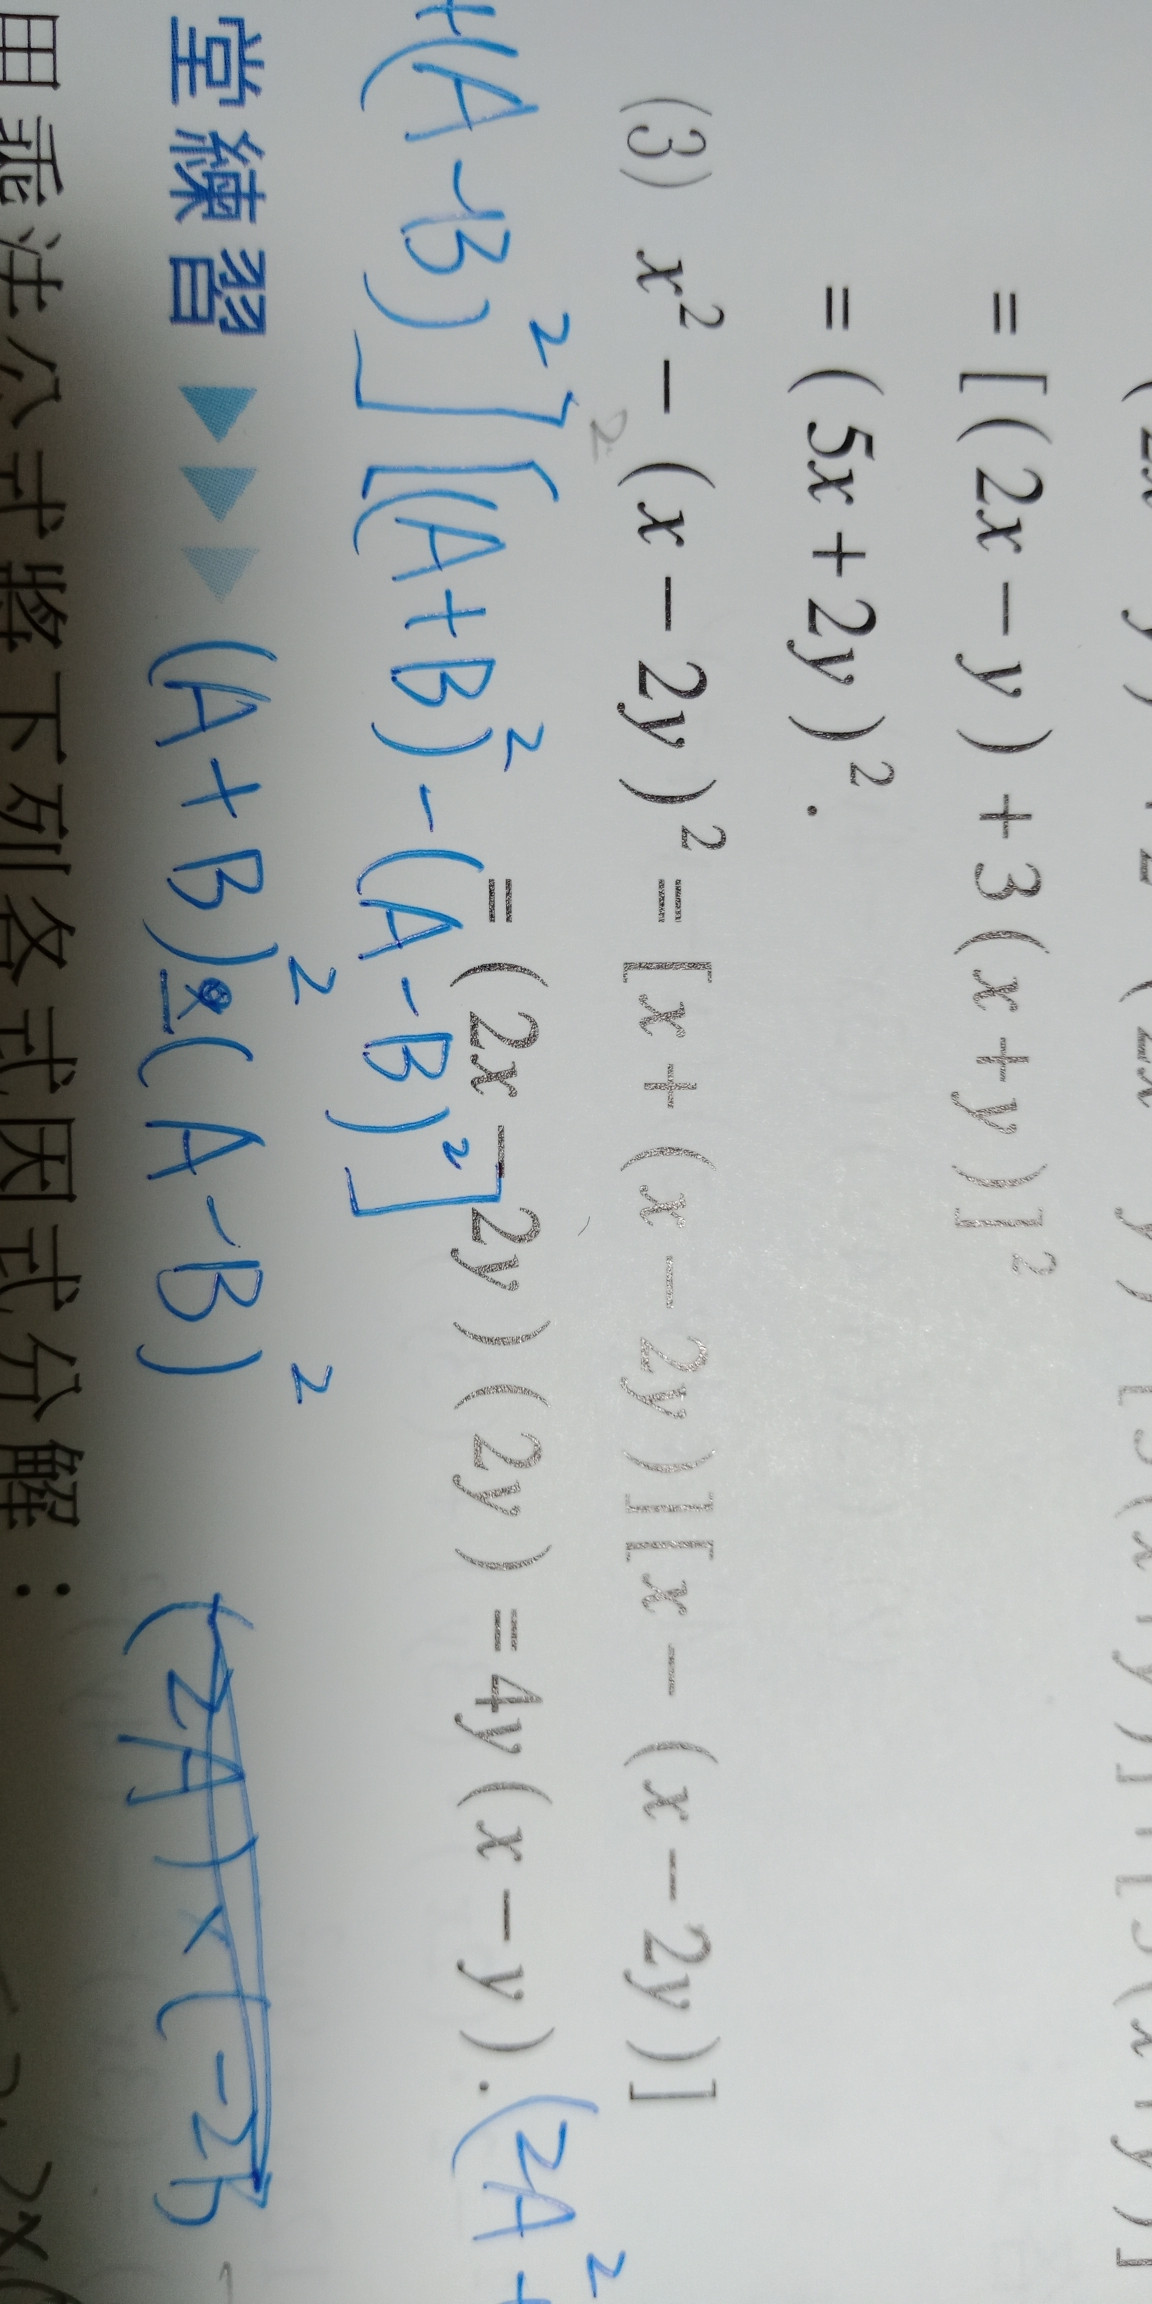 = [ ( 2x − y ) + 3 ( x + y ) ]²
= ( 5x + 2y )².
(3) x² − ( x − 2y )² = [ x + ( x − 2y ) ] [ x − ( x − 2y ) ]
2
= ( 2x − 2y ) ( 2y ) = 4y ( x − y ).
(2A²+
+(A-B)²] [(A+B)²-(A-B)²]
堂練習
(A+B)²-(A-B)²
用乘法公式將下列各式因式分解：